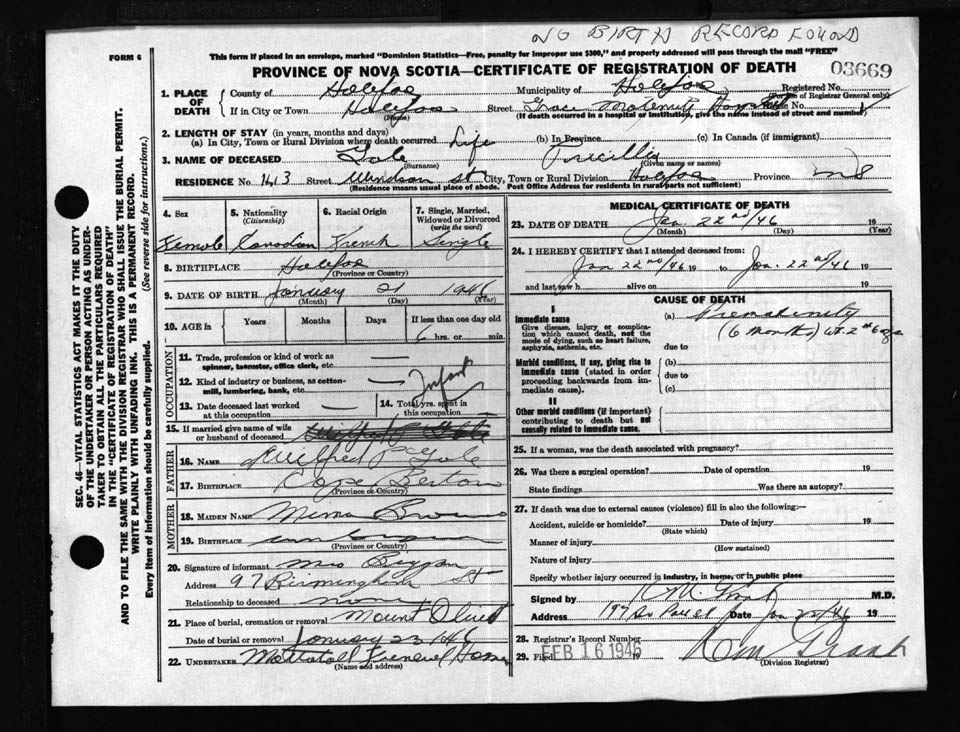 NO BIRTH RECORD FOUND
FORM 6
This form if placed in an envelope, marked "Dominion Statistics—Free, penalty for improper use $300," and properly addressed will pass through the mail "FREE"
PROVINCE OF NOVA SCOTIA—CERTIFICATE OF REGISTRATION OF DEATH 03669
1. PLACE OF DEATH County of Halifax Municipality of Halifax Registered No. (For use of Registrar General only)
If in City or Town Halifax (Name) Street Grace Maternity Hospital House No.
(If death occurred in a hospital or institution, give the name instead of street and number)
2. LENGTH OF STAY (in years, months and days)
(a) In City, Town or Rural Division where death occurred Life (b) In Province (c) In Canada (if immigrant)
3. NAME OF DECEASED Gale (Surname) Pricillia (Given name or names)
RESIDENCE No. 1613 Street Windsor St City, Town or Rural Division Halifax Province NS
(Residence means usual place of abode. Post Office Address for residents in rural parts not sufficient)
4. Sex 5. Nationality (Citizenship) 6. Racial Origin 7. Single, Married, Widowed or Divorced (write the word)
Female Canadian French Single
8. BIRTHPLACE Halifax
(Province or Country)
9. DATE OF BIRTH January 21 1946
(Month) (Day) (Year)
10. AGE in Years Months Days If less than one day old
6 hrs. or min.
OCCUPATION
11. Trade, profession or kind of work as spinner, teamster, office clerk, etc. —
12. Kind of industry or business, as cotton-mill, lumbering, bank, etc. — Infant
13. Date deceased last worked at this occupation — 14. Total yrs. spent in this occupation
15. If married give name of wife or husband of deceased
FATHER
16. NAME Wilfred Gale
17. BIRTHPLACE Cape Breton
(Province or Country)
MOTHER
18. MAIDEN NAME Minna
19. BIRTHPLACE
(Province or Country)
20. Signature of informant Mrs
Address 97 Birmingham St
Relationship to deceased none
21. Place of burial, cremation or removal Mount Olivet
Date of burial or removal January 23 1946
22. UNDERTAKER Mattatall Funeral Home
(Name and address)
MEDICAL CERTIFICATE OF DEATH
23. DATE OF DEATH Jan. 22nd/46 19
(Month) (Day) (Year)
24. I HEREBY CERTIFY that I attended deceased from:
Jan 22nd/46 19 to Jan. 22nd/46 19
and last saw h alive on 19
CAUSE OF DEATH
I
Immediate cause (a) Prematurity
Give disease, injury or complication which caused death, not the mode of dying, such as heart failure, asphyxia, asthenia, etc.
(6 months) wt. 2# 6 ozs
due to
Morbid conditions, if any, giving rise to immediate cause (stated in order proceeding backwards from immediate cause).
(b)
due to
(c)
II
Other morbid conditions (if important) contributing to death but not causally related to immediate cause.
25. If a woman, was the death associated with pregnancy?
26. Was there a surgical operation? Date of operation 19
State findings Was there an autopsy?
27. If death was due to external causes (violence) fill in also the following:—
Accident, suicide or homicide? Date of injury 19
(State which)
Manner of injury
(How sustained)
Nature of injury
Specify whether injury occurred in industry, in home, or in public place
Signed by M.D.
Address Date Jan 22/46 19
28. Registrar's Record Number
29. Filed FEB 16 1946 19
(Division Registrar)
SEC. 46—VITAL STATISTICS ACT MAKES IT THE DUTY
OF THE UNDERTAKER OR PERSON ACTING AS UNDERTAKER TO OBTAIN ALL THE PARTICULARS REQUIRED
IN THE "CERTIFICATE OF REGISTRATION OF DEATH"
AND TO FILE THE SAME WITH THE DIVISION REGISTRAR WHO SHALL ISSUE THE BURIAL PERMIT.
WRITE PLAINLY WITH UNFADING INK. THIS IS A PERMANENT RECORD.
Every item of information should be carefully supplied. (See reverse side for instructions.)